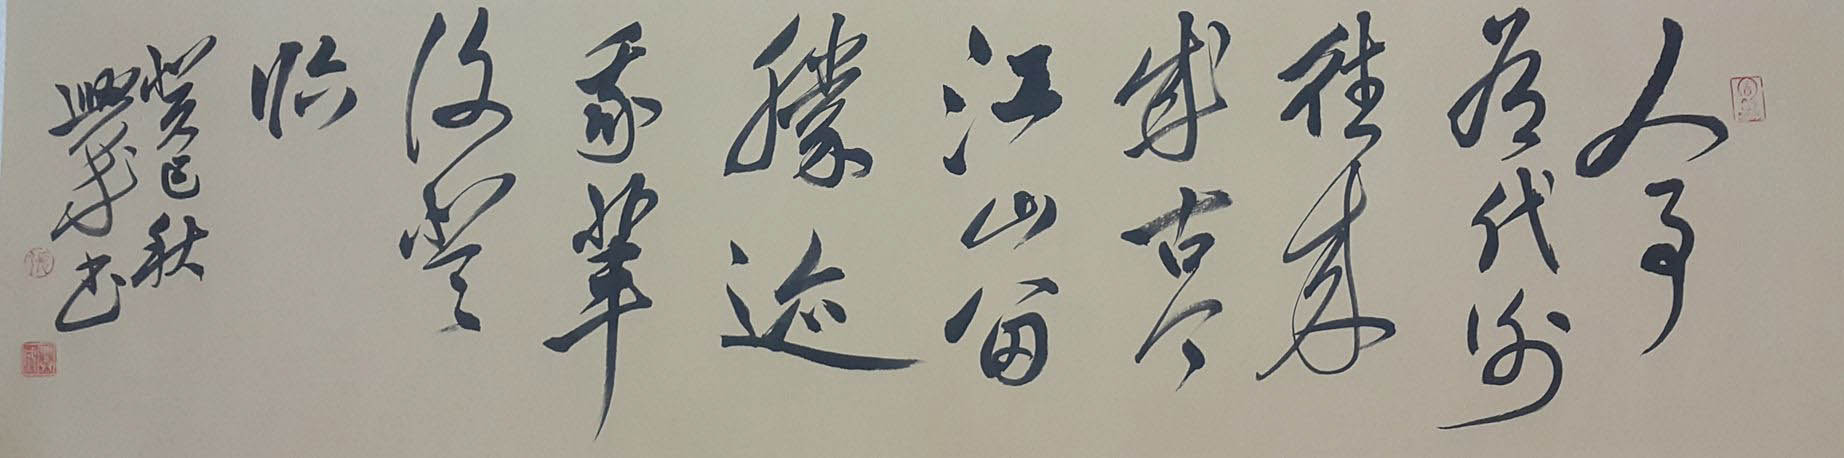 人事
有代谢
往来
成古今
江山留
胜迹
我辈
复登
临
癸巳秋
兴武书